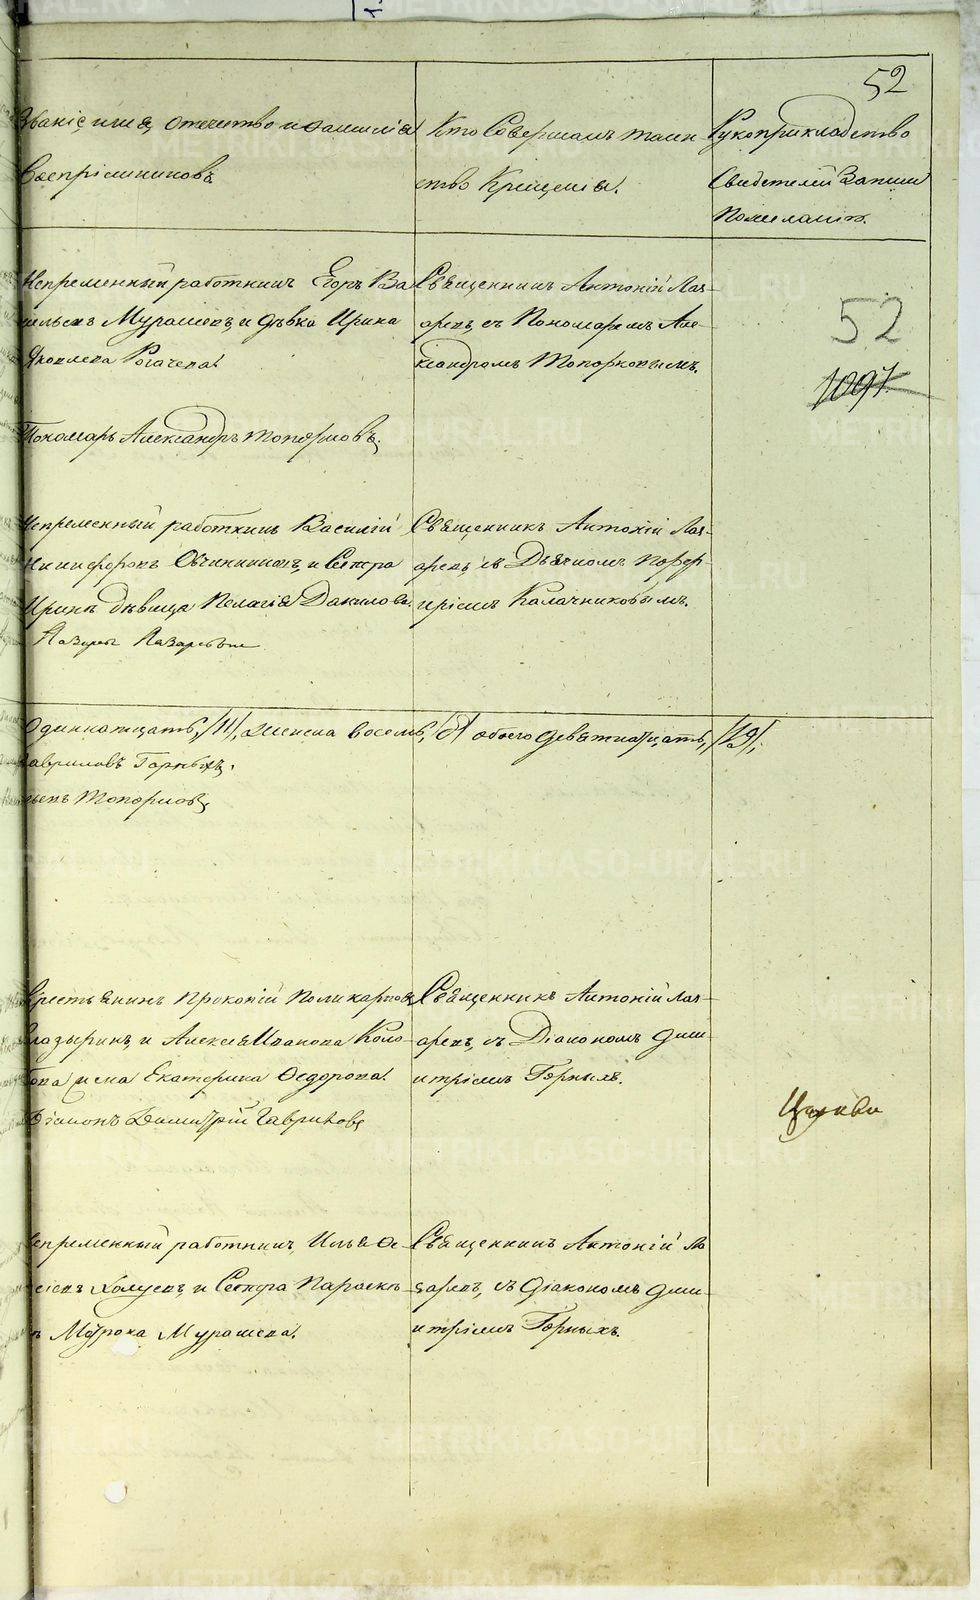 52
Званіе, имя, отчество и фамилія
Воспріемниковъ
Кто Совершалъ таин
ство Крещенія.
Рукоприкладство
Свидетелей Записи
Пожелаютъ.
Непременный работникъ Егоръ Ва
сильевъ Мурашевъ, и дѣвка Ирина
Яковлева Рогачева.
Пономарь Александръ Топорковъ.
Священникъ Антоній Лаз-
аревъ, съ Пономаремъ Але-
ксандромъ Топорковымъ.
52
1097
Непременный работникъ Василій
Никифоровъ Овчинниковъ, и Сестра
Ирины дѣвица Пелагія Данилова.
Священникъ Антоній Лаз-
аревъ, съ Дьячкомъ Порфи-
ріемъ Калачниковымъ.
Одиннатцать, /11/, Женска восемь, /8/ обоего девятнатцать, /19/,
Гавриловъ Горныхъ.
Топорковъ
Крестьянинъ Прокопій Поликарповъ
Глазыринъ, и Алексѣя Иванова Коло-
това жена Екатерина Федорова.
Діаконъ Димитрій Гавриловъ
Священникъ Антоній Лаз-
аревъ, съ Діакономъ Дим-
итріемъ Горныхъ.
Церкви
Непременный работникъ, Илья Ѳе-
и Сестра Параскe-
Мурашева.
Священникъ Антоній Ла
заревъ, съ Діакономъ Дим-
итріемъ Горныхъ.
METRIKI.GASO-URAL.RU